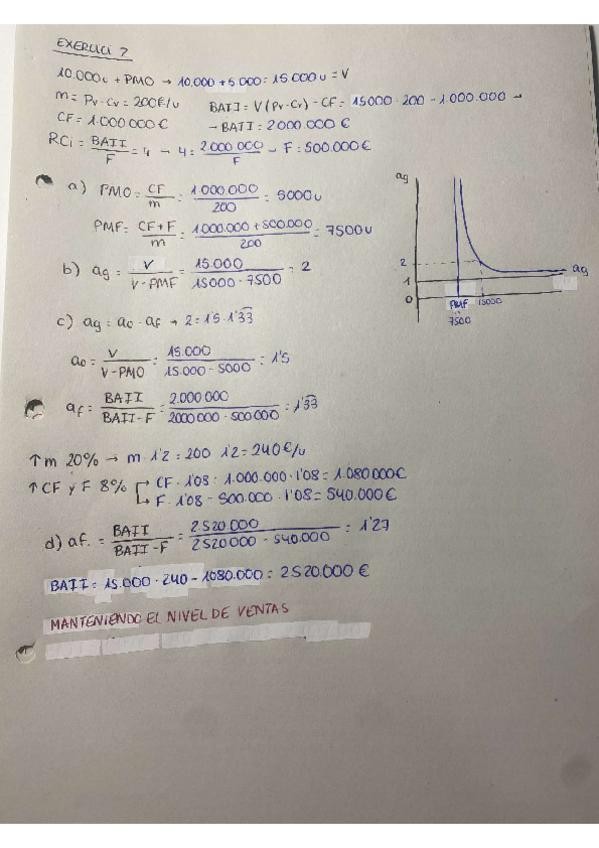 EXERCICI 7
10.000u + PMO → 10.000 + 5.000 = 15 000 u = V
m = Pv - Cv = 200€/u
BAII = V (Pv - Cv) - CF = 15000 · 200 - 1.000.000 →
CF = 1.000.000 €
→ BAII = 2000.000 €
RCi = BAII / F = 4 → 4 = 2.000.000 / F → F = 500.000 €
a) PMO = CF / m = 1.000.000 / 200 = 5000u
PMF = CF + F / m = 1.000.000 + 500.000 / 200 = 7500u
b) ag = V / V - PMF = 15.000 / 15000 - 7500 = 2
c) ag = ao · af → 2 = 1'5 · 1'33
ao = V / V - PMO = 15.000 / 15.000 - 5000 = 1'5
af = BAII / BAII - F = 2.000.000 / 2000000 - 500000 = 1'33
ag
2
1
0
ag
PMF
15000
7500
↑ m 20% → m · 1'2 = 200 · 1'2 = 240€/u
↑ CF y F 8%
CF · 1'08 = 1.000.000 · 1'08 = 1.080000€
F · 1'08 → 500.000 · 1'08 = 540.000 €
d) af. = BAII / BAII - F = 2.520 000 / 2 520 000 - 540.000 = 1'27
BAII = 15.000 · 240 - 1080.000 = 2 520.000 €
MANTENIENDO EL NIVEL DE VENTAS